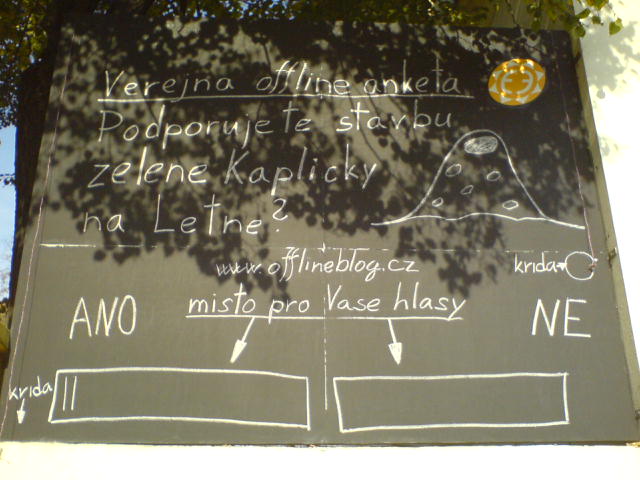 Verejna offline anketa
Podporujete stavbu
zelene Kaplicky
na Letne?
www.offlineblog.cz
krida
ANO
misto pro Vase hlasy
NE
krida